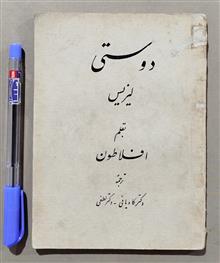 دوستی
لیزیس
بقلم
افلاطون
ترجمه
دکتر کاویانی - دکتر لطفی